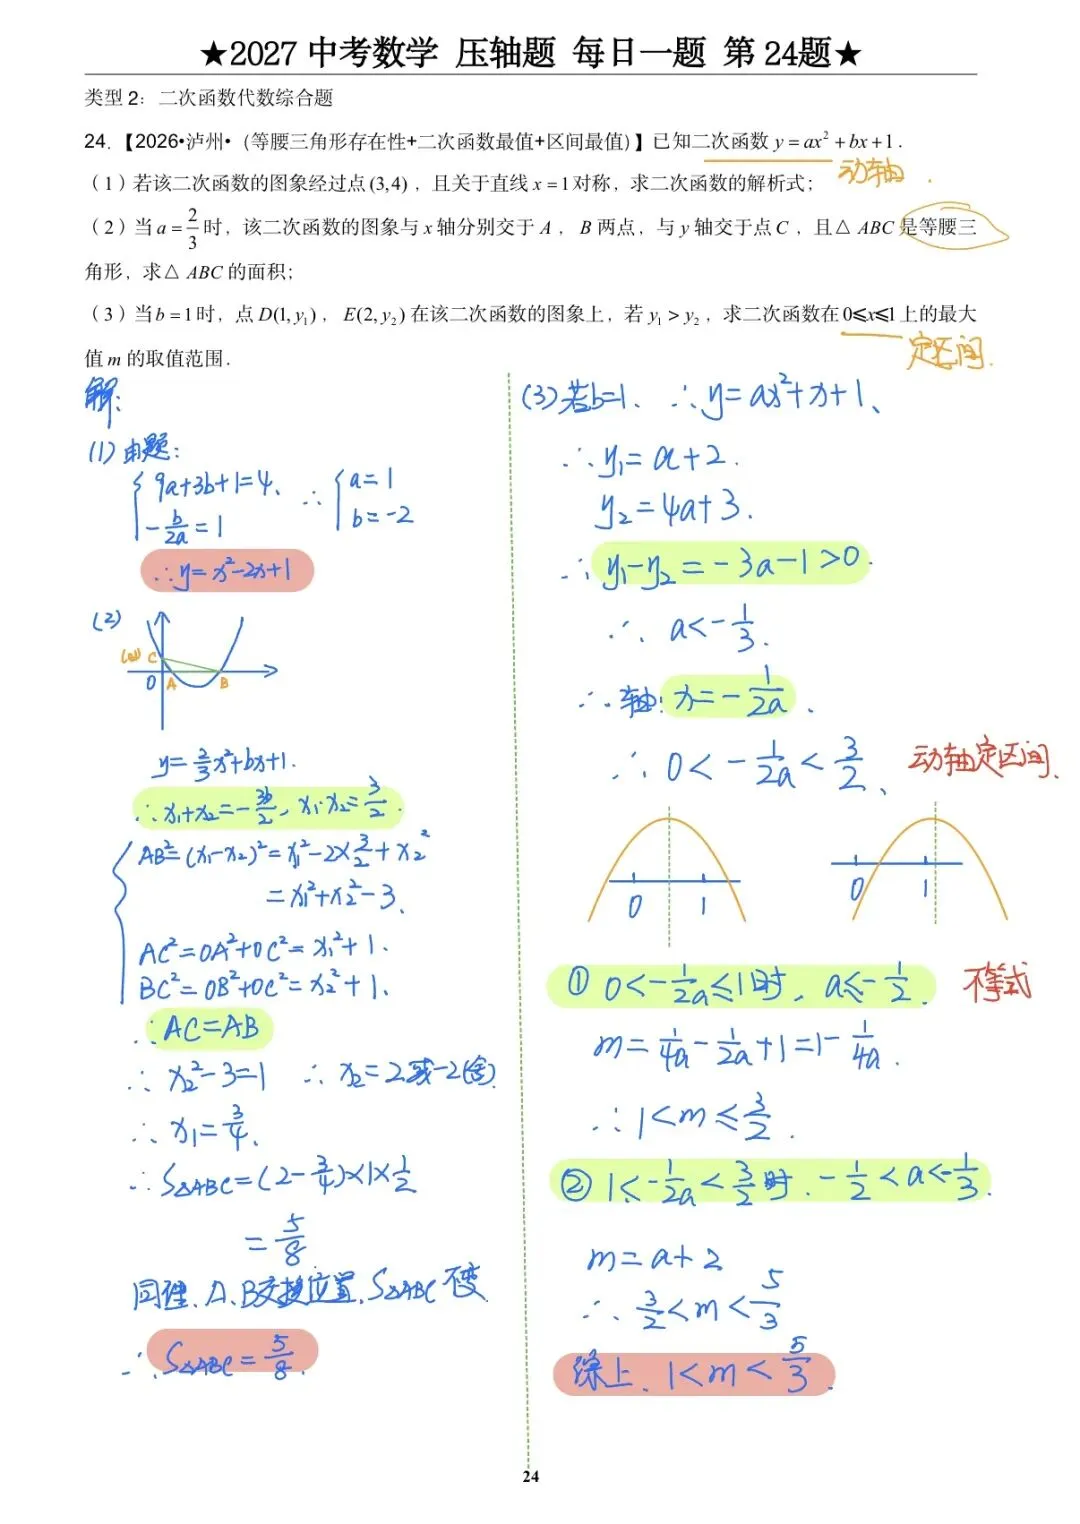 ★2027 中考数学 压轴题 每日一题 第 24题★
类型 2：二次函数代数综合题
24.【2026•泸州•（等腰三角形存在性+二次函数最值+区间最值)】已知二次函数 y = ax² + bx + 1 .
动轴 .
（1）若该二次函数的图象经过点 (3, 4) ，且关于直线 x = 1 对称，求二次函数的解析式；
（2）当 a = 2/3 时，该二次函数的图象与 x 轴分别交于 A ， B 两点，与 y 轴交于点 C ，且△ ABC 是等腰三
角形，求△ ABC 的面积；
（3）当 b = 1 时，点 D(1, y₁) ， E(2, y₂) 在该二次函数的图象上，若 y₁ > y₂ ，求二次函数在 0≤x≤1 上的最大
值 m 的取值范围．
定区间.
解:
(1) 由题:
{ 9a+3b+1=4、 ∴ { a=1
-b/2a = 1 b=-2
∴y= x²-2x+1
(2)
C
O A B
y= 2/3x²+bx+1.
∴x₁+x₂=-3b/2, x₁·x₂=3/2.
AB²=(x₁-x₂)²=x₁²-2×3/2+x₂²
=x₁²+x₂²-3、
AC²=OA²+OC²= x₁²+1.
BC²=OB²+OC²= x₂²+1.
∴AC=AB
∴ x₂²-3=1 ∴ x₂=2或-2(舍)
∴ x₁=3/4、
∴S△ABC=(2-3/4)×1×1/2
=5/8
同理、A、B交换位置、S△ABC不变
∴ S△ABC=5/8.
(3) 若b=1、 ∴y= ax²+x+1、
∴y₁= a+2.
y₂=4a+3.
∴ y₁-y₂=-3a-1>0.
∴ a<-1/3.
∴轴: x=-1/2a .
∴ 0<-1/2a<3/2、
动轴定区间、
0 1
0 1
① 0<-1/2a≤1时, a≤-1/2.
不等式
m=1/4a-1/2a+1=1-1/4a.
∴ 1<m≤3/2.
② 1<-1/2a<3/2时.-1/2<a<-1/3.
m=a+2
∴ 3/2<m<5/3
综上、1<m<5/3.
24